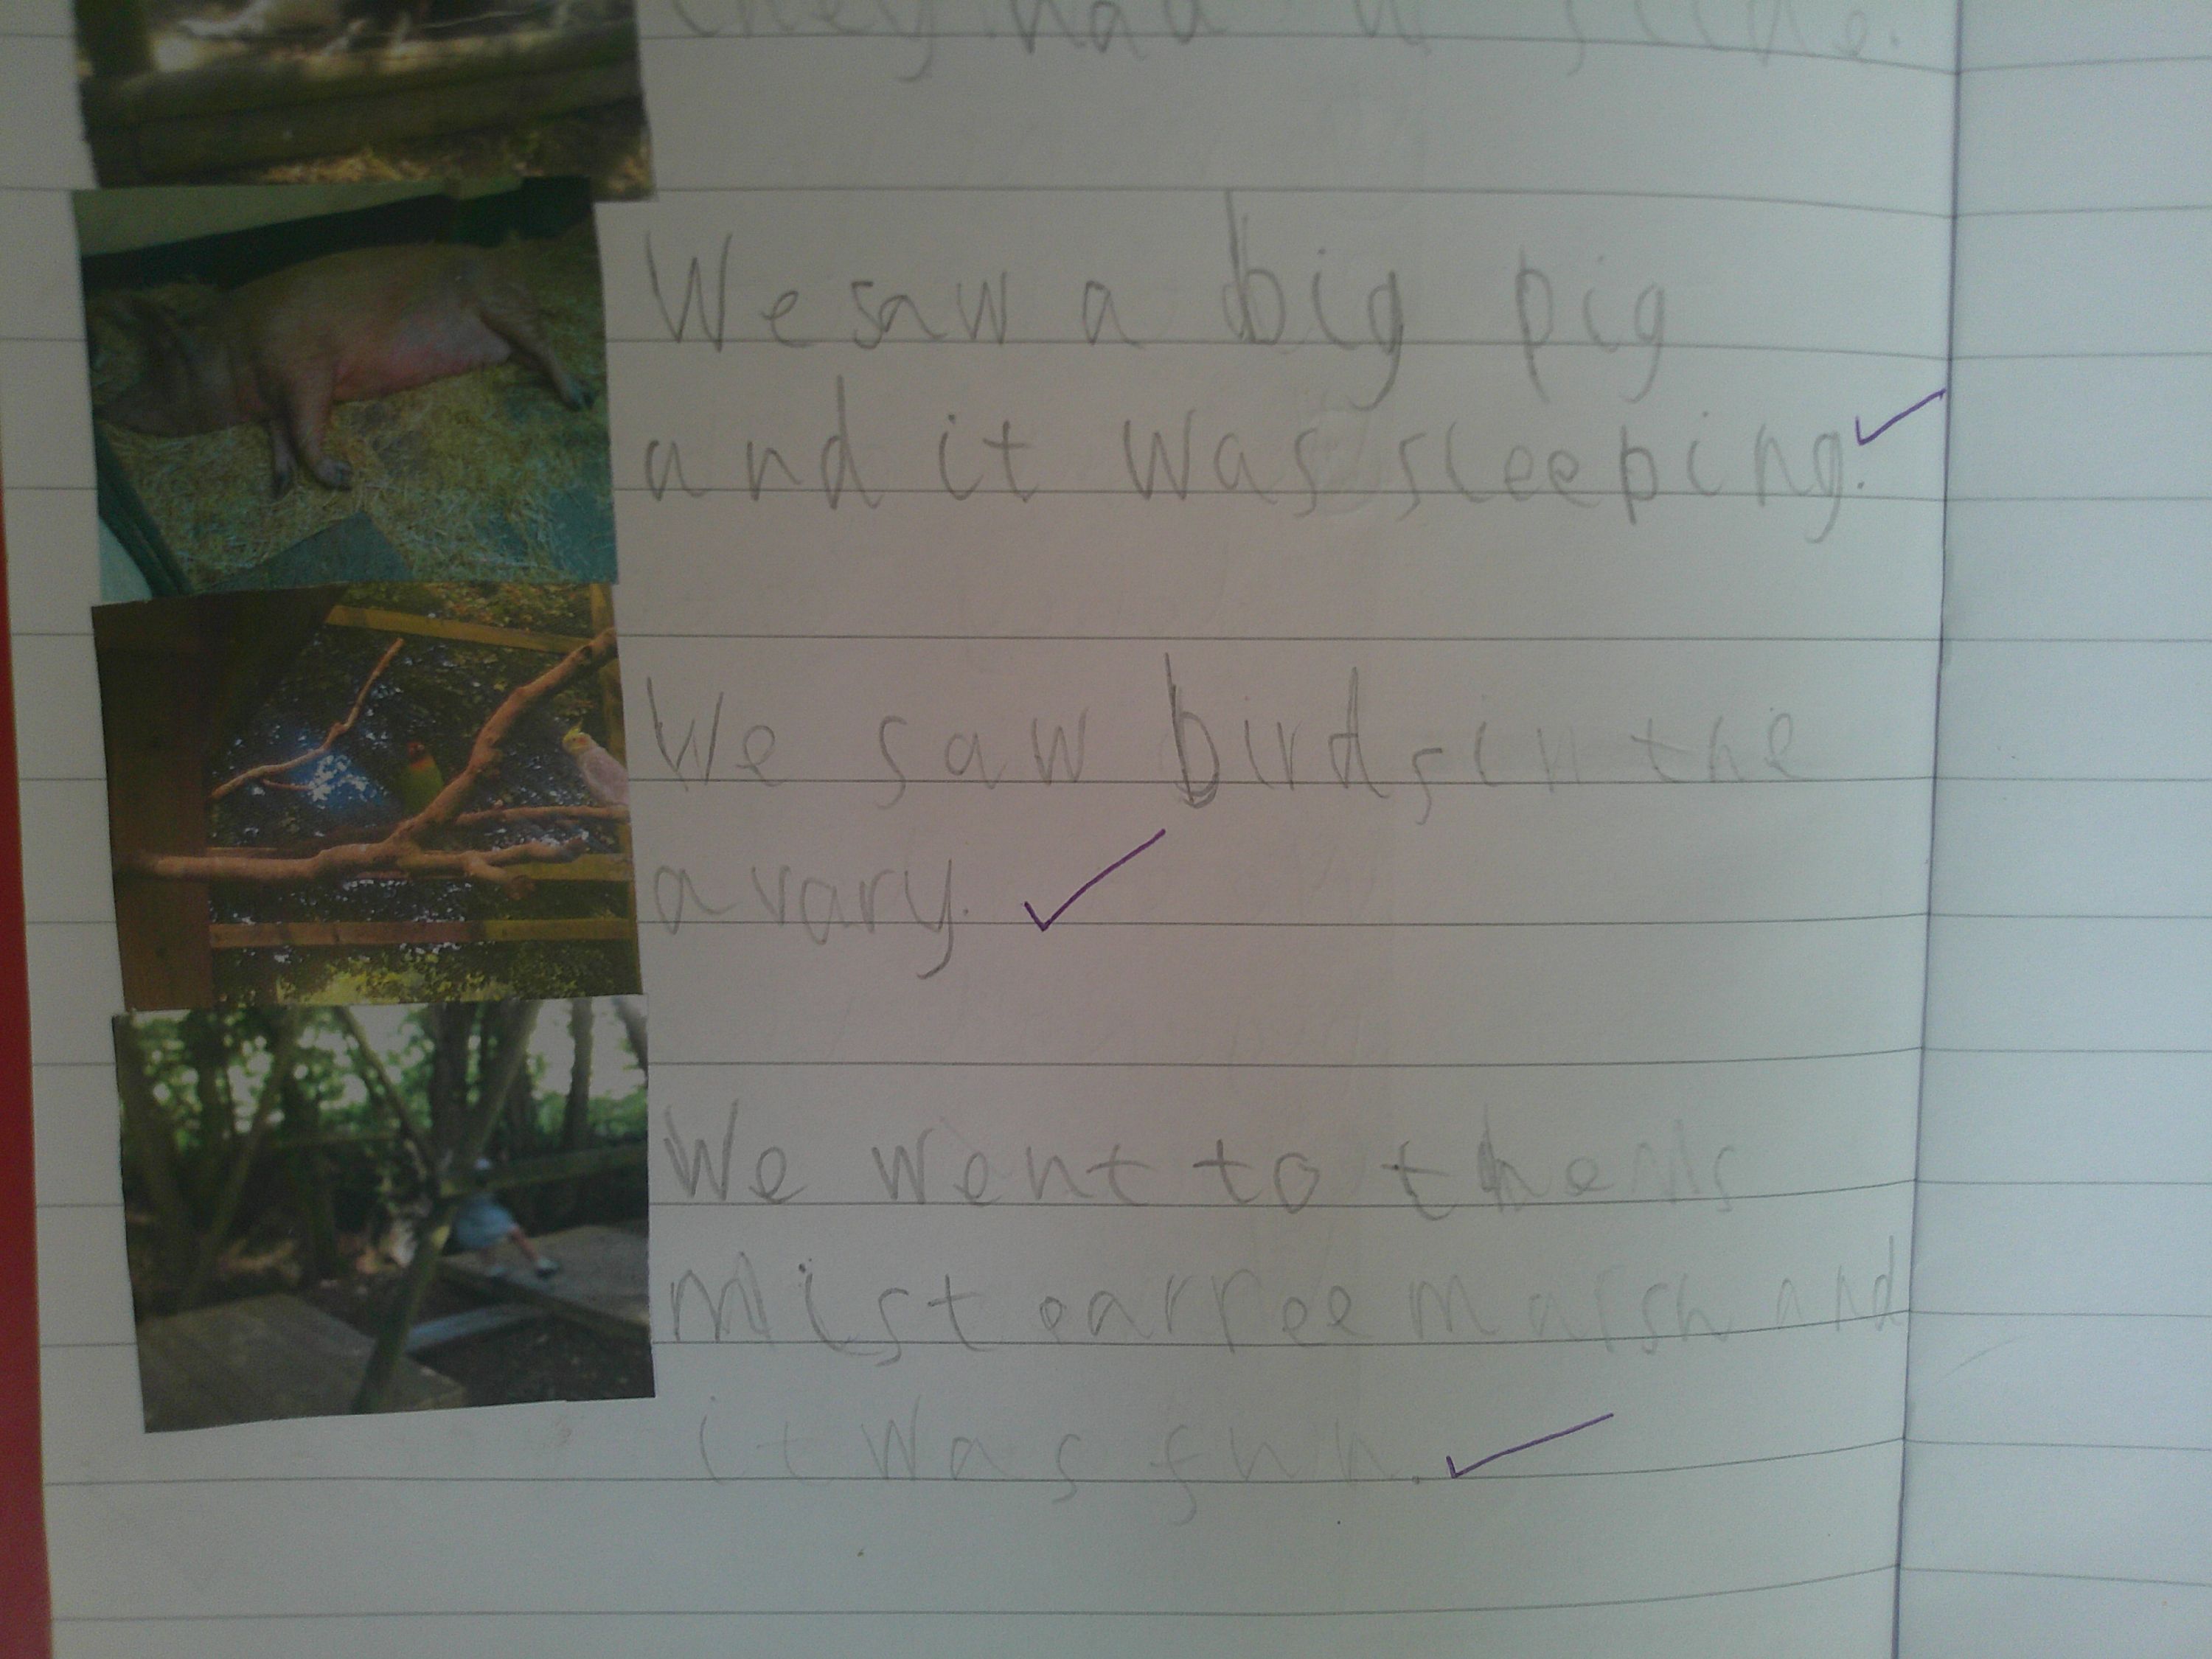 they had a
We saw a big pig
and it was sleeping.
We saw birds in the
avary.
We went to the
mistearree marsh and
it was fun.